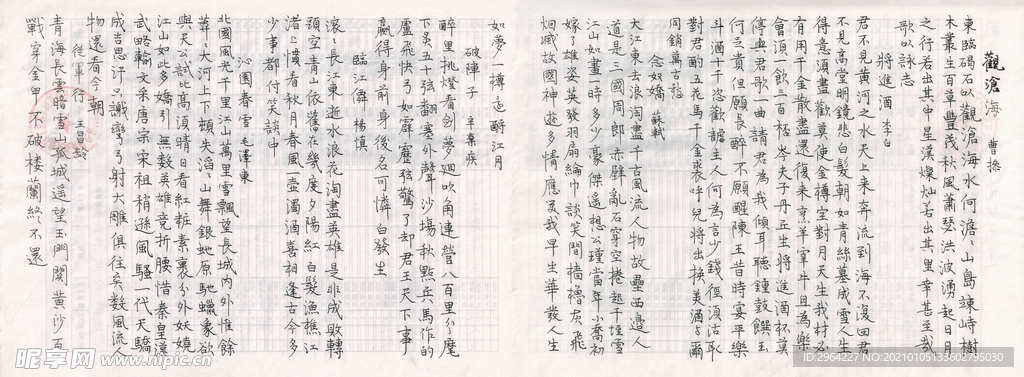 觀滄海
曹操
東臨碣石以觀滄海水何澹々山島竦峙樹
木叢生百草豐茂秋風蕭瑟洪波湧起日月
之行若出其中星漢燦爛若出其里幸甚至哉
歌以詠志
將進酒 李白
君不見黃河之水天上來奔流到海不復回君
不見高堂明鏡悲白髮朝如青絲暮成雪人生
得意須盡歡莫使金樽空對月天生我材必
有用千金散盡還復來烹羊宰牛且為樂
會須一飲三百杯岑夫子丹丘生將進酒杯莫
停與君歌一曲請君為我傾耳聽鐘鼓饌玉
何足貴但願長醉不願醒陳王昔時宴平樂
斗酒十千恣歡謔主人何為言少錢徑須沽取
對君酌五花馬千金裘呼兒將出換美酒與爾
同銷萬古愁
念奴嬌 蘇軾
大江東去浪淘盡千古風流人物故壘西邊人
道是三國周郎赤壁亂石穿空捲起千堆雪
江山如畫一時多少豪傑遙想公瑾當年小喬初
嫁了雄姿英發羽扇綸巾談笑間檣櫓灰飛
烟滅故國神遊多情應笑我早生華髮人生
如夢一樽還酹江月
破陣子 辛棄疾
醉里挑燈看劍夢迴吹角連營八百里分麾
下炙五十弦翻塞外聲沙場秋點兵馬作的
盧飛快弓如霹靂弦驚了却君王天下事
贏得身前身後名可憐白發生
臨江僊 楊慎
滾々長江東逝水浪花淘盡英雄是非成敗轉
頭空青山依舊在幾度夕陽紅白髮漁樵江
渚上慣看秋月春風一壺濁酒喜相逢古今多
少事都付笑談中
沁園春雪 毛澤東
北國風光千里冰封萬里雪飄望長城內外惟餘
莽々大河上下頓失滔々山舞銀蛇原馳蠟象欲
與天公試比高須晴日看紅粧素裹分外妖嬈
江山如此多嬌引無數英雄競折腰惜秦皇漢
武略輸文采唐宗宋祖稍遜風騷一代天驕
成吉思汗只識彎弓射大雕俱往矣數風流人
物還看今朝
從軍行 王昌齡
青海長雲暗雪山孤城遙望玉門關黃沙百
戰穿金甲不破樓蘭終不還
昵享网 www.nipic.cn
ID:2964227 NO:20210105133602795030